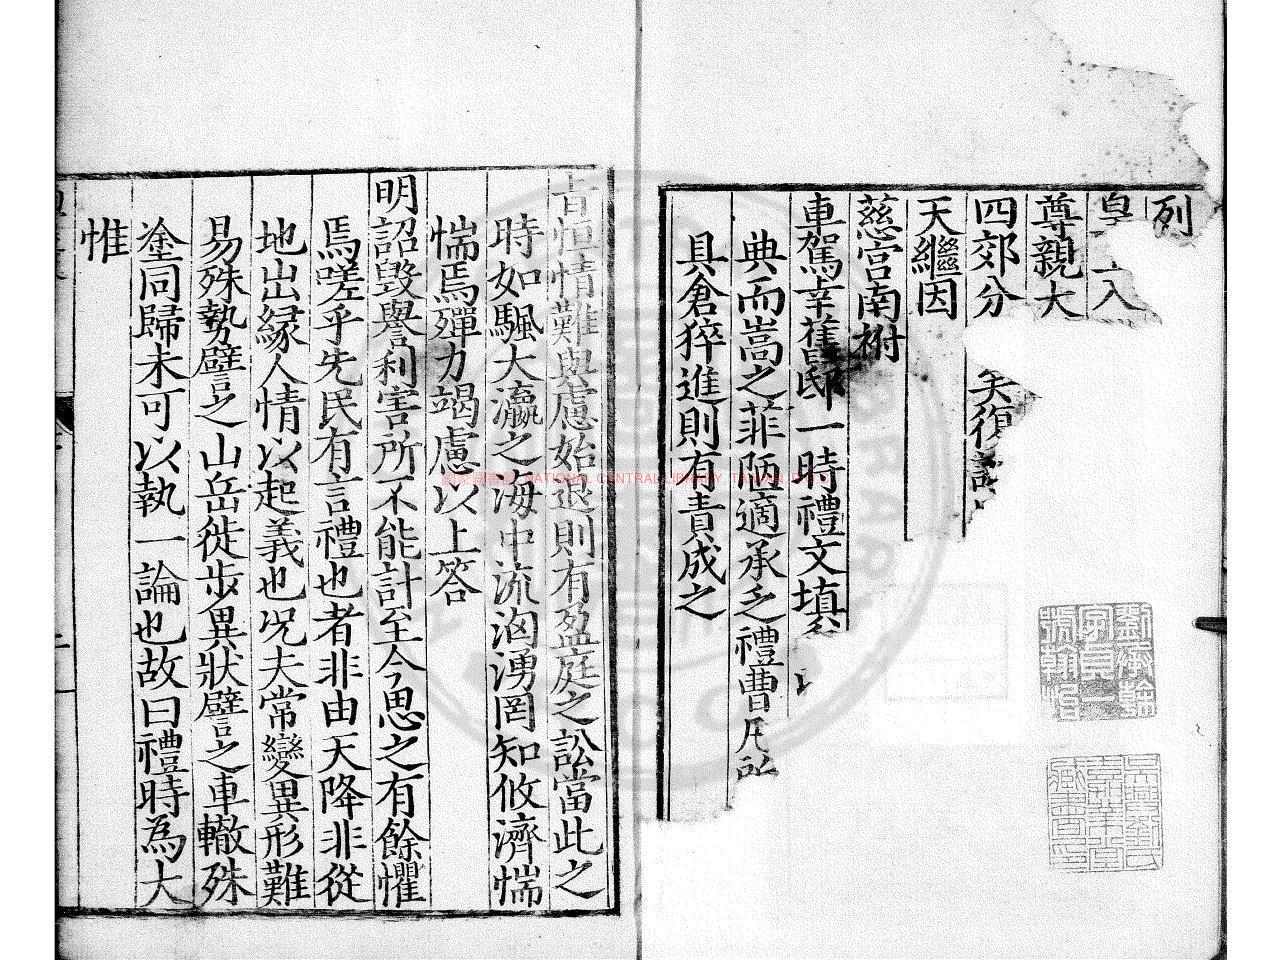 列
皇 入
尊親大
四郊分 矣復
天繼因
慈宮南柎
車駕幸舊邸一時禮文填
典而嵩之菲陋適承乏禮曹凡所
具倉猝進則有責成之
昔恒情難與慮始退則有盈庭之訟當此之
時如颿大瀛之海中流洶湧罔知攸濟惴
惴焉殫力竭慮以上答
明詔毀譽利害所不能計至今思之有餘懼
焉嗟乎先民有言禮也者非由天降非從
地出緣人情以起義也况夫常變異形難
易殊勢譬之山岳徙步異狀譬之車轍殊
塗同歸未可以執一論也故曰禮時為大
惟
劉承幹字貞一號翰怡
吳興劉氏嘉業堂藏書印
NATIONAL CENTRAL LIBRARY, TAIWAN